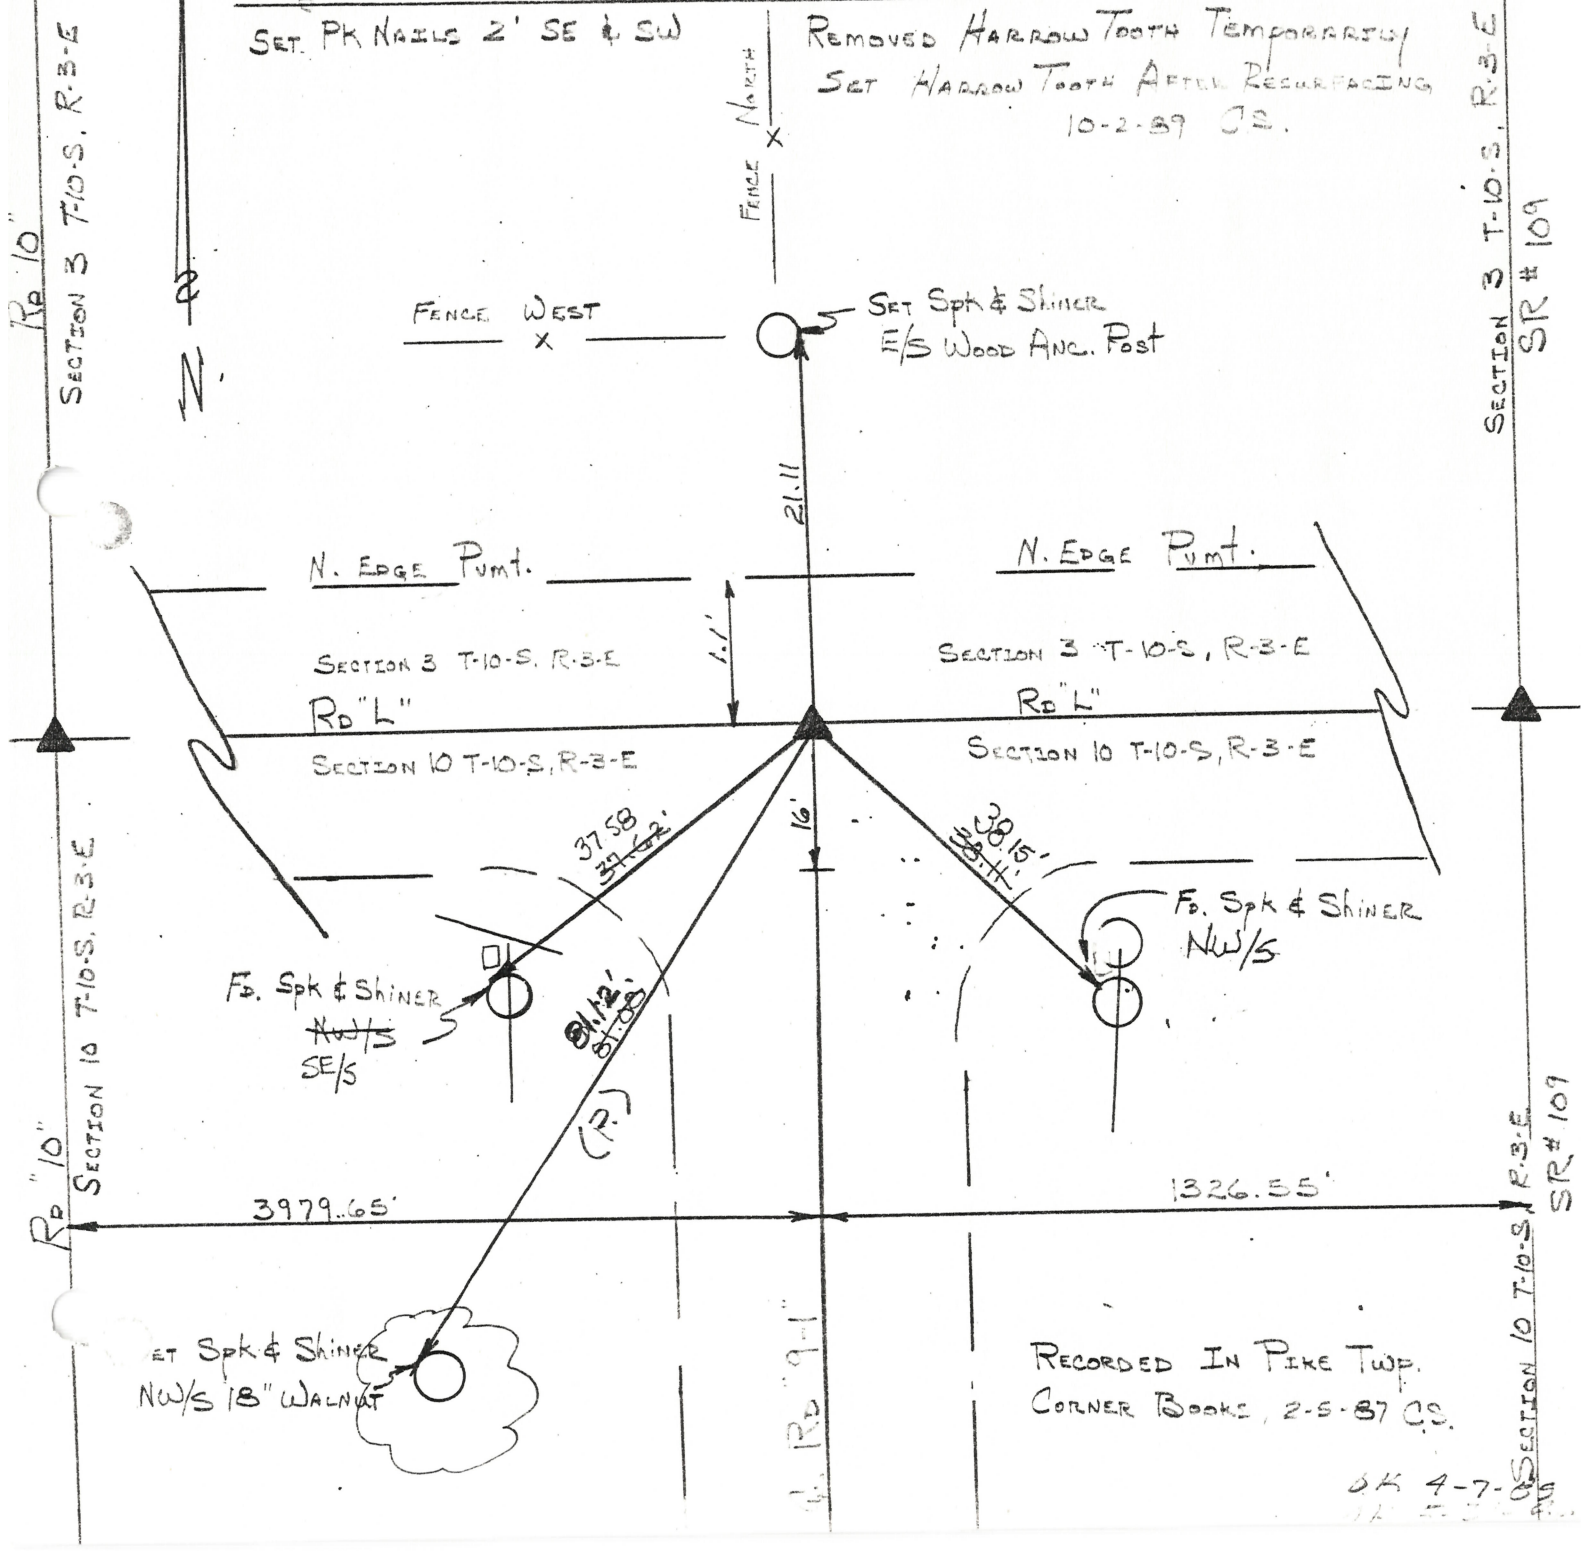 SET PK NAILS 2' SE & SW
REMOVED HARROW TOOTH TEMPORARILY
SET HARROW TOOTH AFTER RESURFACING
10-2-89 C.S.
FENCE NORTH
X
RD "10"
SECTION 3 T-10-S. R-3-E
N.
SECTION 3 T-10-S, R-3-E
SR # 109
FENCE WEST
X
SET Spk & Shiner
E/S WOOD ANC. Post
21.11
N. EDGE Pvmt.
N. EDGE Pvmt.
1.1'
SECTION 3 T-10-S. R-3-E
SECTION 3 T-10-S, R-3-E
RD "L"
RD "L"
SECTION 10 T-10-S, R-3-E
SECTION 10 T-10-S, R-3-E
37.58
37.62'
16'
38.15'
38.11'
FD. Spk & Shiner
NW/S
FD. Spk & Shiner
NW/S
SE/S
81.12'
81.08'
(P.)
SECTION 10 T-10-S. R-3-E
RD "10"
3979.65'
1326.55'
SECTION 10 T-10-S, R-3-E
SR# 109
ET Spk & Shiner
NW/S 18" WALNUT
RD "9-1"
RECORDED IN PIKE TWP.
CORNER BOOKS, 2-5-87 C.S.
OK 4-7-